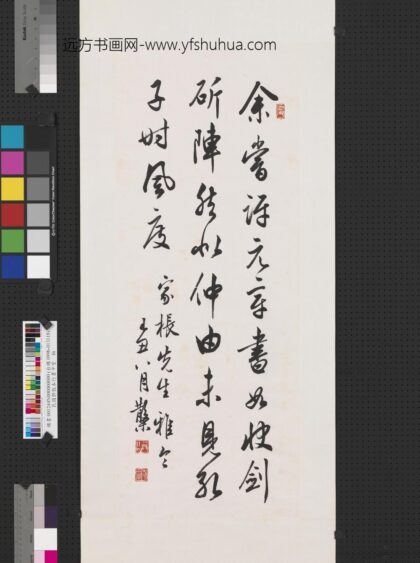 远方书画网-www.yfshuhua.com
余嘗評元章書如快劍
斫陣然似仲由未見孔
子時風度
家棖先生雅令
乙丑八月